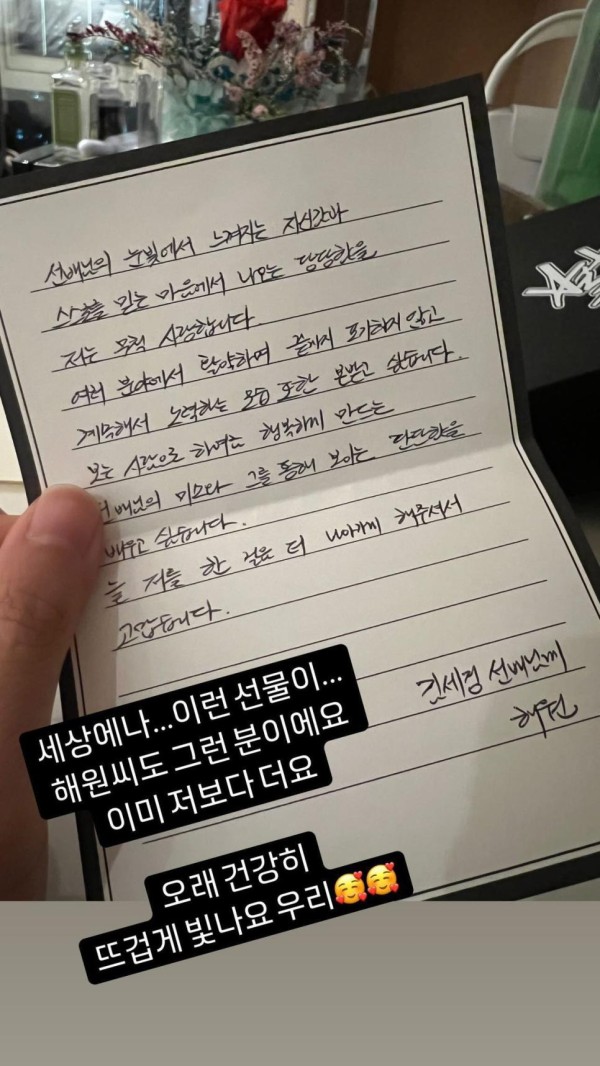 선배님의 눈빛에서 느껴지는 자신감과
스스로를 믿는 마음에서 나오는 당당함을
저는 무척 사랑합니다.
여러 분야에서 활약하며 끝까지 포기하지 않고
계속해서 노력하는 모습 또한 본받고 싶습니다.
보는 사람으로 하여금 행복하게 만드는
선배님의 미소와 그를 통해 보이는 단단함을
배우고 싶습니다.
늘 저를 한 걸음 더 나아가게 해주셔서
고맙습니다.
선배님께
해원
세상에나...이런 선물이...
해원씨도 그런 분이에요
이미 저보다 더요
오래 건강히
뜨겁게 빛나요 우리🥰🥰